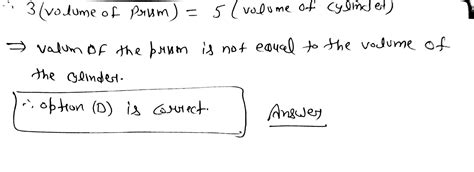 ∴ 3 (volume of Prism) = 5 (volume of cylinder)
⇒ valum of the prism is not equal to the volume of
the cylinder.
∴ option (D) is correct. Answer